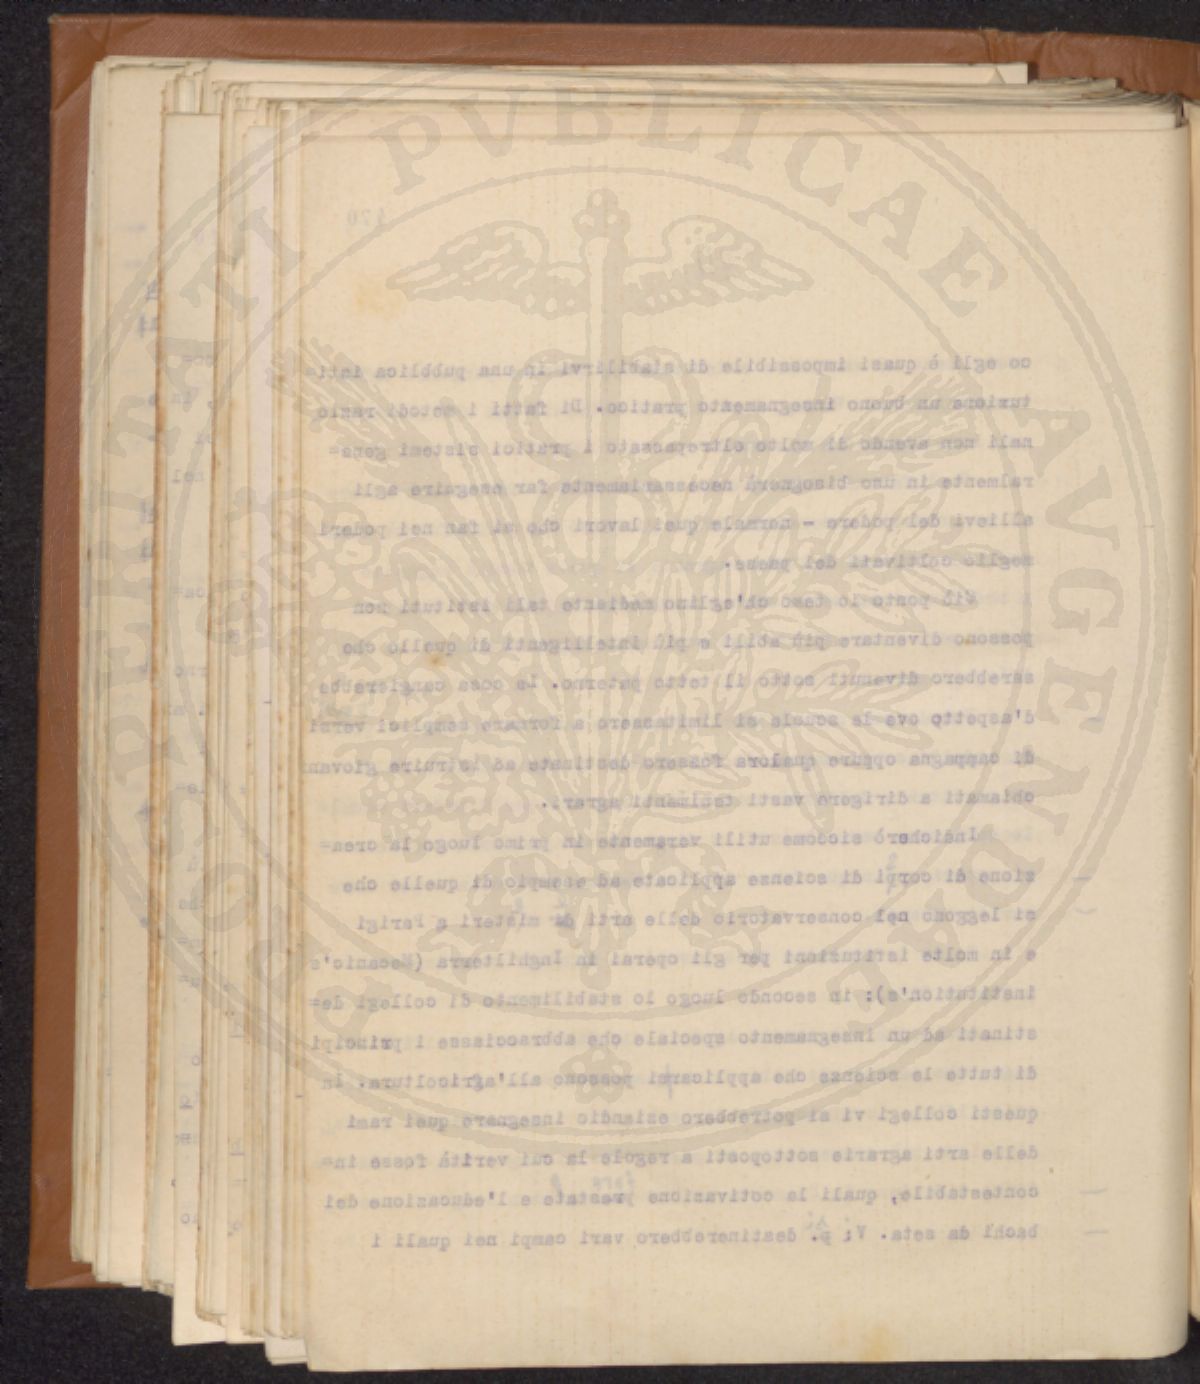 470
co egli è quasi impossibile di stabilirvi in una pubblica isti=
tuzione un buono insegnamento pratico. Di fatti i metodi razio
nali non avendo di molto oltrepassato i pratici sistemi gene=
ralmente in uso bisognerà necessariamente far eseguire agli
allievi del podere - normale quei lavori che si fan nei poderi
meglio coltivati del paese.
ponto lo teso ch'eglino mediante tali istituti non
possono diventare più abili e più intelligenti di quello che
sarebbero divenuti sotto il tetto paterno. La cosa cangierebbe
d'aspetto ove le scuole si limitassero a formare semplici
di campagna oppure qualora fossero destinate ad istruire giovani
chiamati a dirigere vasti tenimenti agrari.
Indicherò siccome utili veramente in primo luogo la crea=
zione di corpi di scienze applicate ad esempio di quelle che
si leggono nel conservatorio delle arti di misteri a Parigi
e in molte istituzioni per gli operai in Inghilterra (Mecanic's
institution's): in secondo luogo lo stabilimento di collegi de=
stinati ad un insegnamento speciale che abbracciasse i principi
di tutte le scienze che applicarsi possono all'agricoltura. In
questi collegi vi si potrebbero eziandio insegnare quei rami
delle arti agrarie sottoposti a regole la cui verità fosse in=
contestabile, quali la cotivazione prestate e l'educazione dei
bachi da seta. V; p. destinerebbero vari campi nei quali i
PROSPERITATI PVBLICAE AVGENDAE